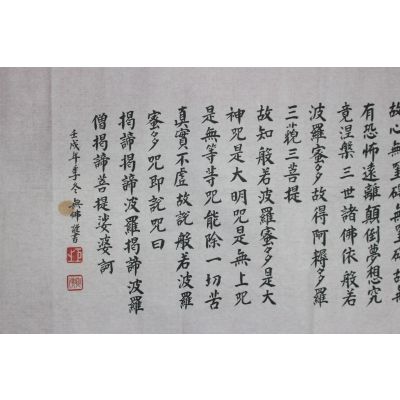 故心無罣礙無罣礙故無
有恐怖遠離顛倒夢想究
竟涅槃三世諸佛依般若
波羅蜜多故得阿耨多羅
三藐三菩提
故知般若波羅蜜多是大
神咒是大明咒是無上咒
是無等等咒能除一切苦
真實不虛故說般若波羅
蜜多咒即說咒曰
揭諦揭諦波羅揭諦波羅
僧揭諦菩提娑婆訶
壬戌年季冬無佛謹書